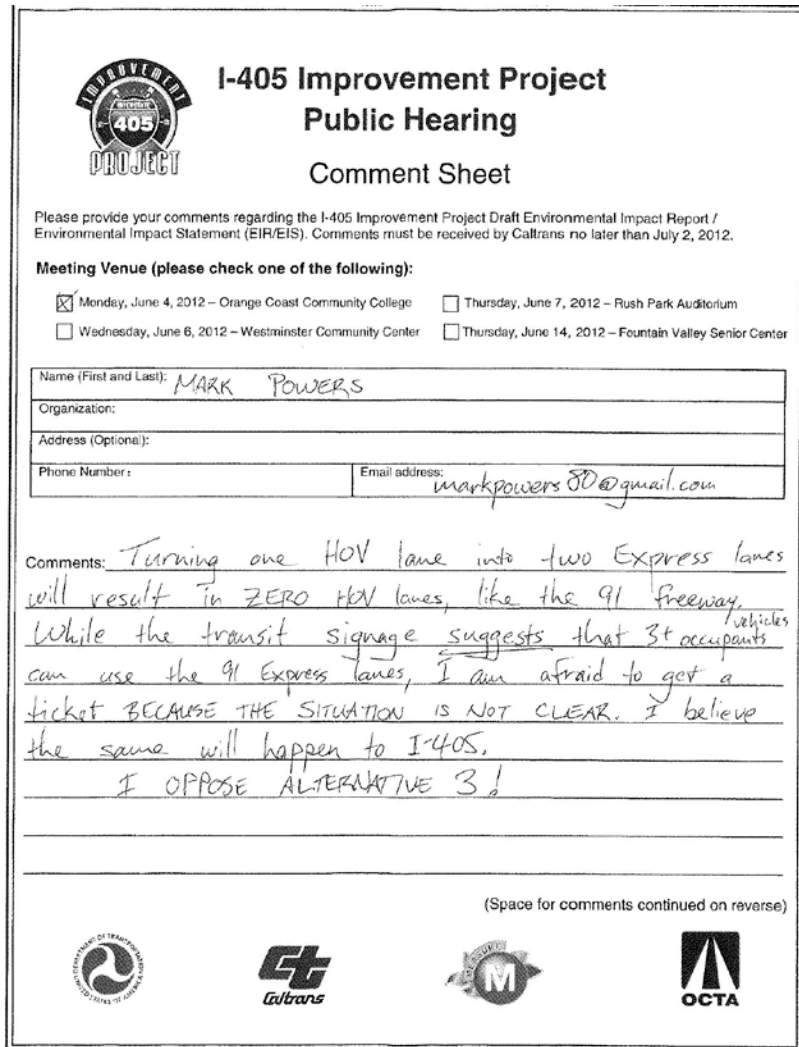 IMPROVEMENT
INTERSTATE
405
PROJECT
I-405 Improvement Project
Public Hearing
Comment Sheet
Please provide your comments regarding the I-405 Improvement Project Draft Environmental Impact Report /
Environmental Impact Statement (EIR/EIS). Comments must be received by Caltrans no later than July 2, 2012.
Meeting Venue (please check one of the following):
Monday, June 4, 2012 – Orange Coast Community College
Thursday, June 7, 2012 – Rush Park Auditorium
Wednesday, June 6, 2012 – Westminster Community Center
Thursday, June 14, 2012 – Fountain Valley Senior Center
Name (First and Last): MARK POWERS
Organization:
Address (Optional):
Phone Number:
Email address: markpowers80@gmail.com
Comments: Turning one HOV lane into two Express lanes
will result in ZERO HOV lanes, like the 91 freeway.
While the transit signage suggests that 3+ occupants vehicles
can use the 91 Express lanes, I am afraid to get a
ticket BECAUSE THE SITUATION IS NOT CLEAR. I believe
the same will happen to I-405.
I OPPOSE ALTERNATIVE 3!
(Space for comments continued on reverse)
DEPARTMENT OF TRANSPORTATION
UNITED STATES OF AMERICA
Ct
Caltrans
MEASURE
M
OCTA